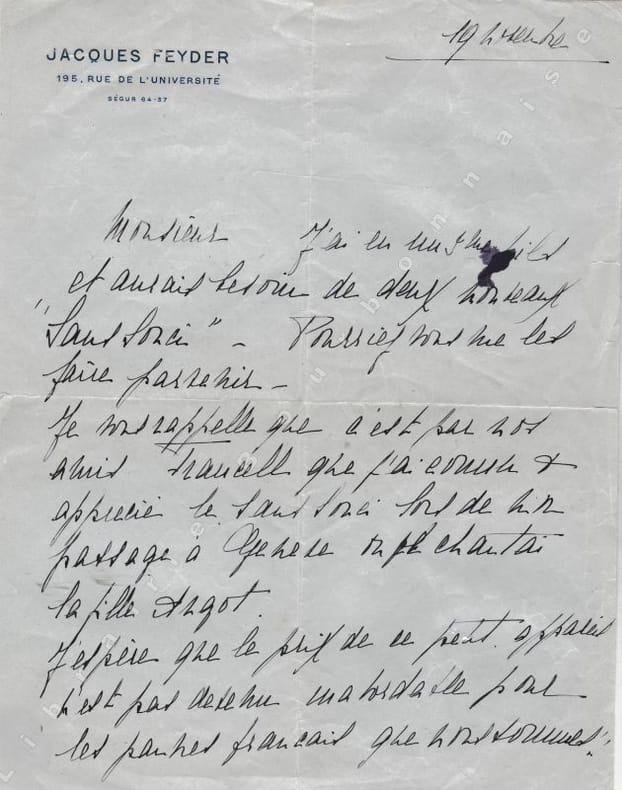 JACQUES FEYDER
195, RUE DE L'UNIVERSITÉ
SÉGUR 64-37
19 novembre
Monsieur J'ai eu un 3me fils
et aurais besoin de deux nouveaux
"Sans Souci" - Pourriez vous me les
faire parvenir -
Je vous rappelle que c'est par nos
amis que j'ai connu &
apprecié le Sans Souci lors de mon
passage à Genève où je chantai
la fille Angot.
J'espère que le prix de ce petit appareil
n'est pas devenu inabordable pour
les pauvres français que nous sommes!!
Librairie Bourbonnaise